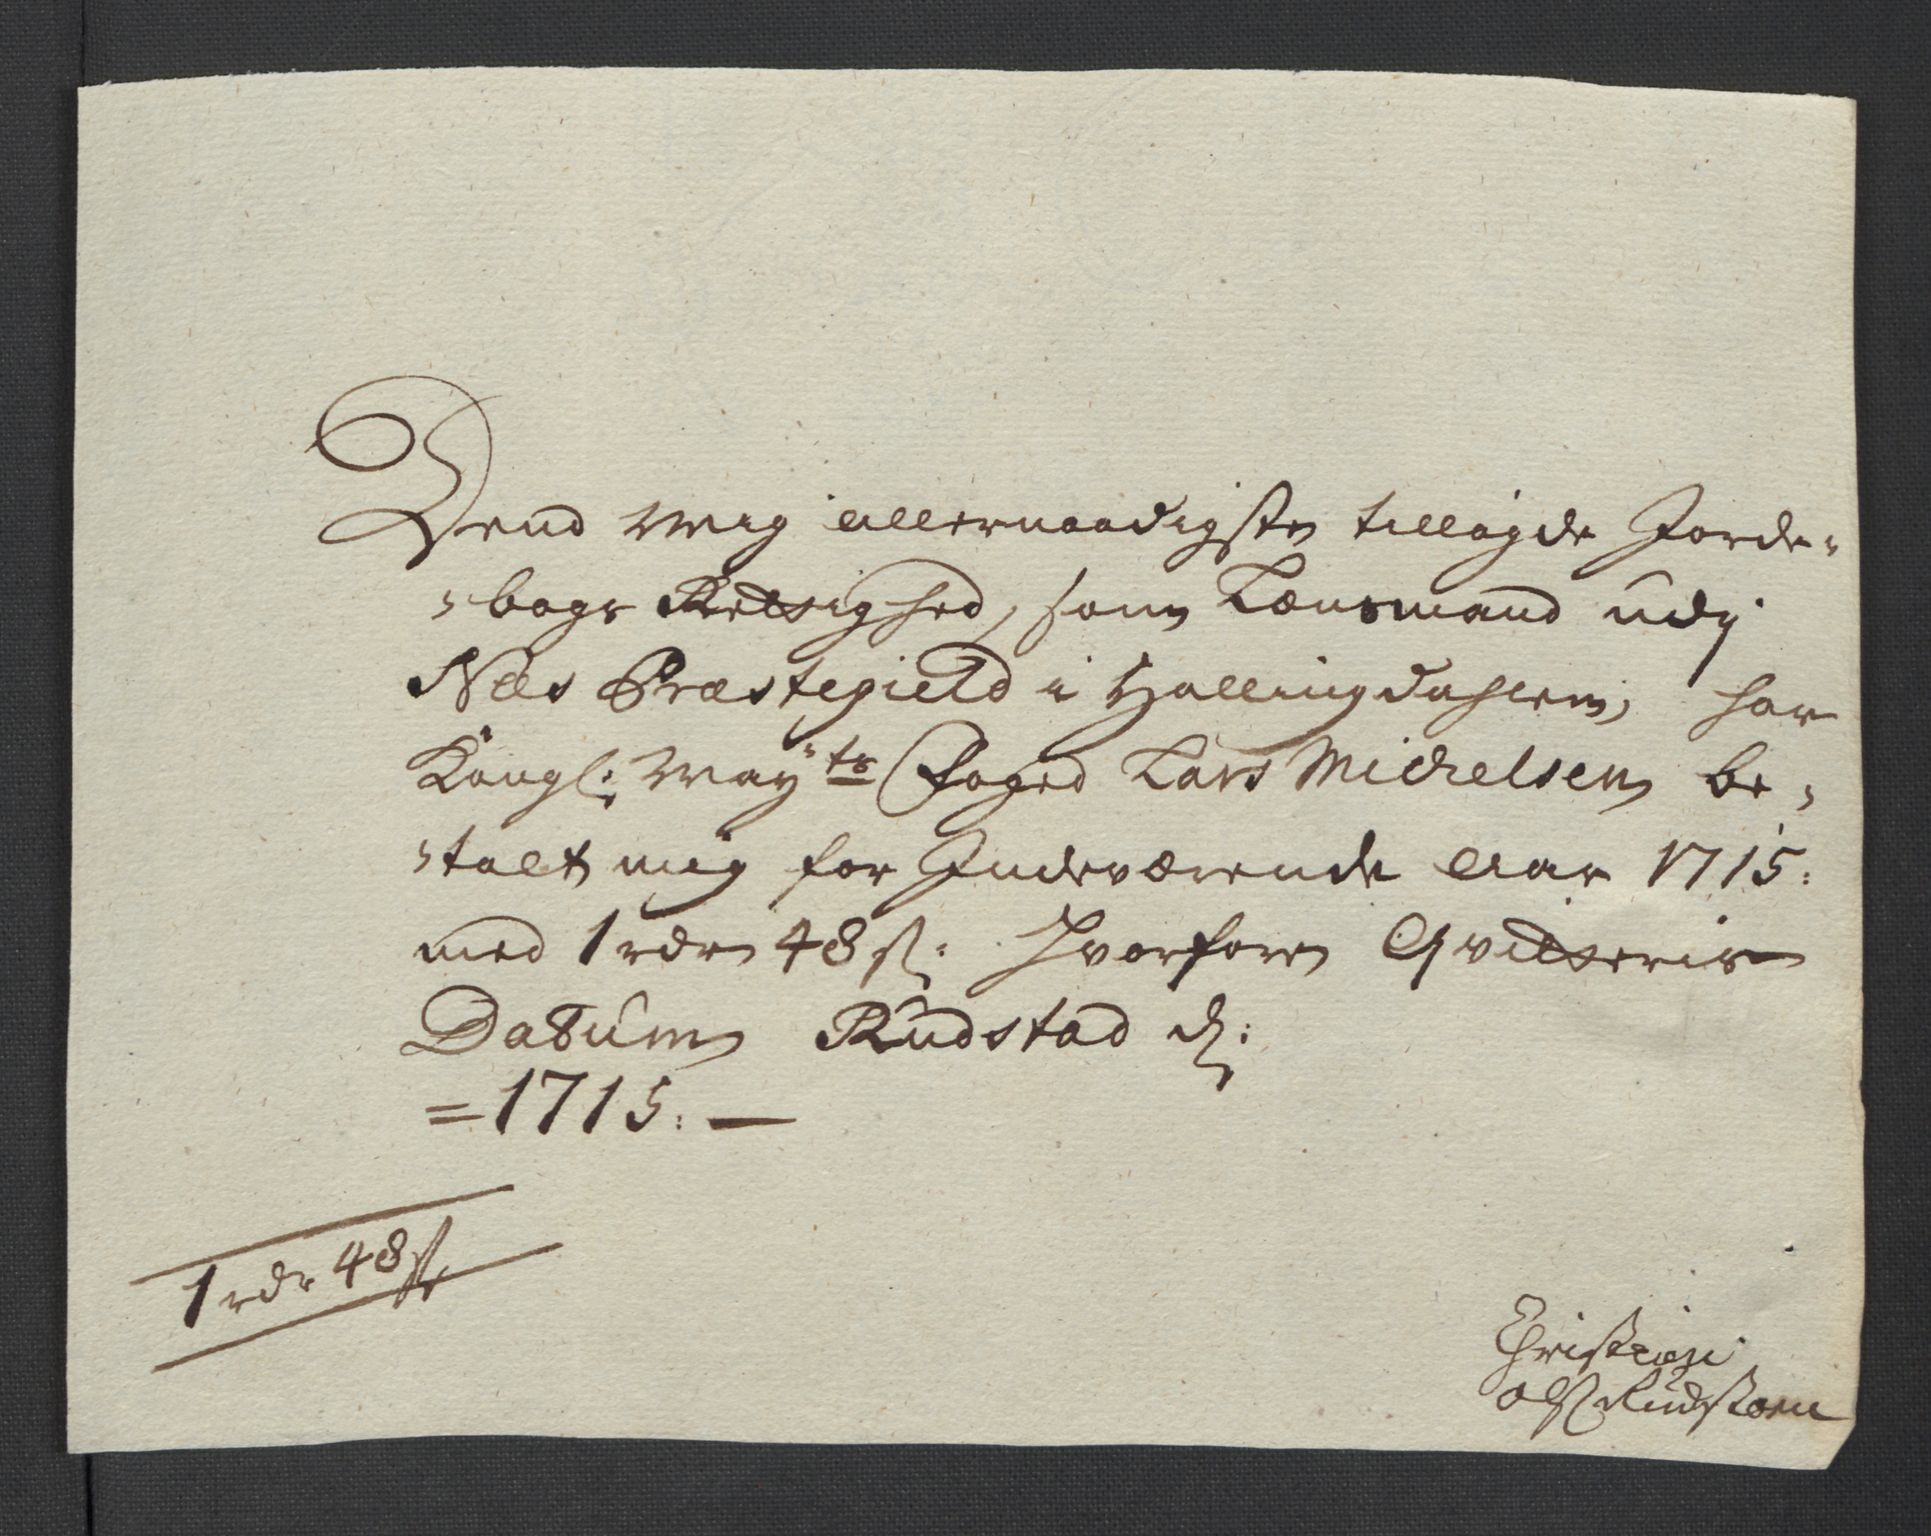 Dend Mig allernaadigste tillagde Jorde-
-bogs Rettighed, som Lænsmand udj
Næs Præstegield i Hallingdahlen, har
Kongl: May:ts Foged Lars Michelsen be-
-talt mig for Indeværende Aar 1715:
med 1 rdr 48 s: Hvorfore Qvitteris
Datum Rudstad d:
=1715: —
1 rdr 48 s
Christian
Ols